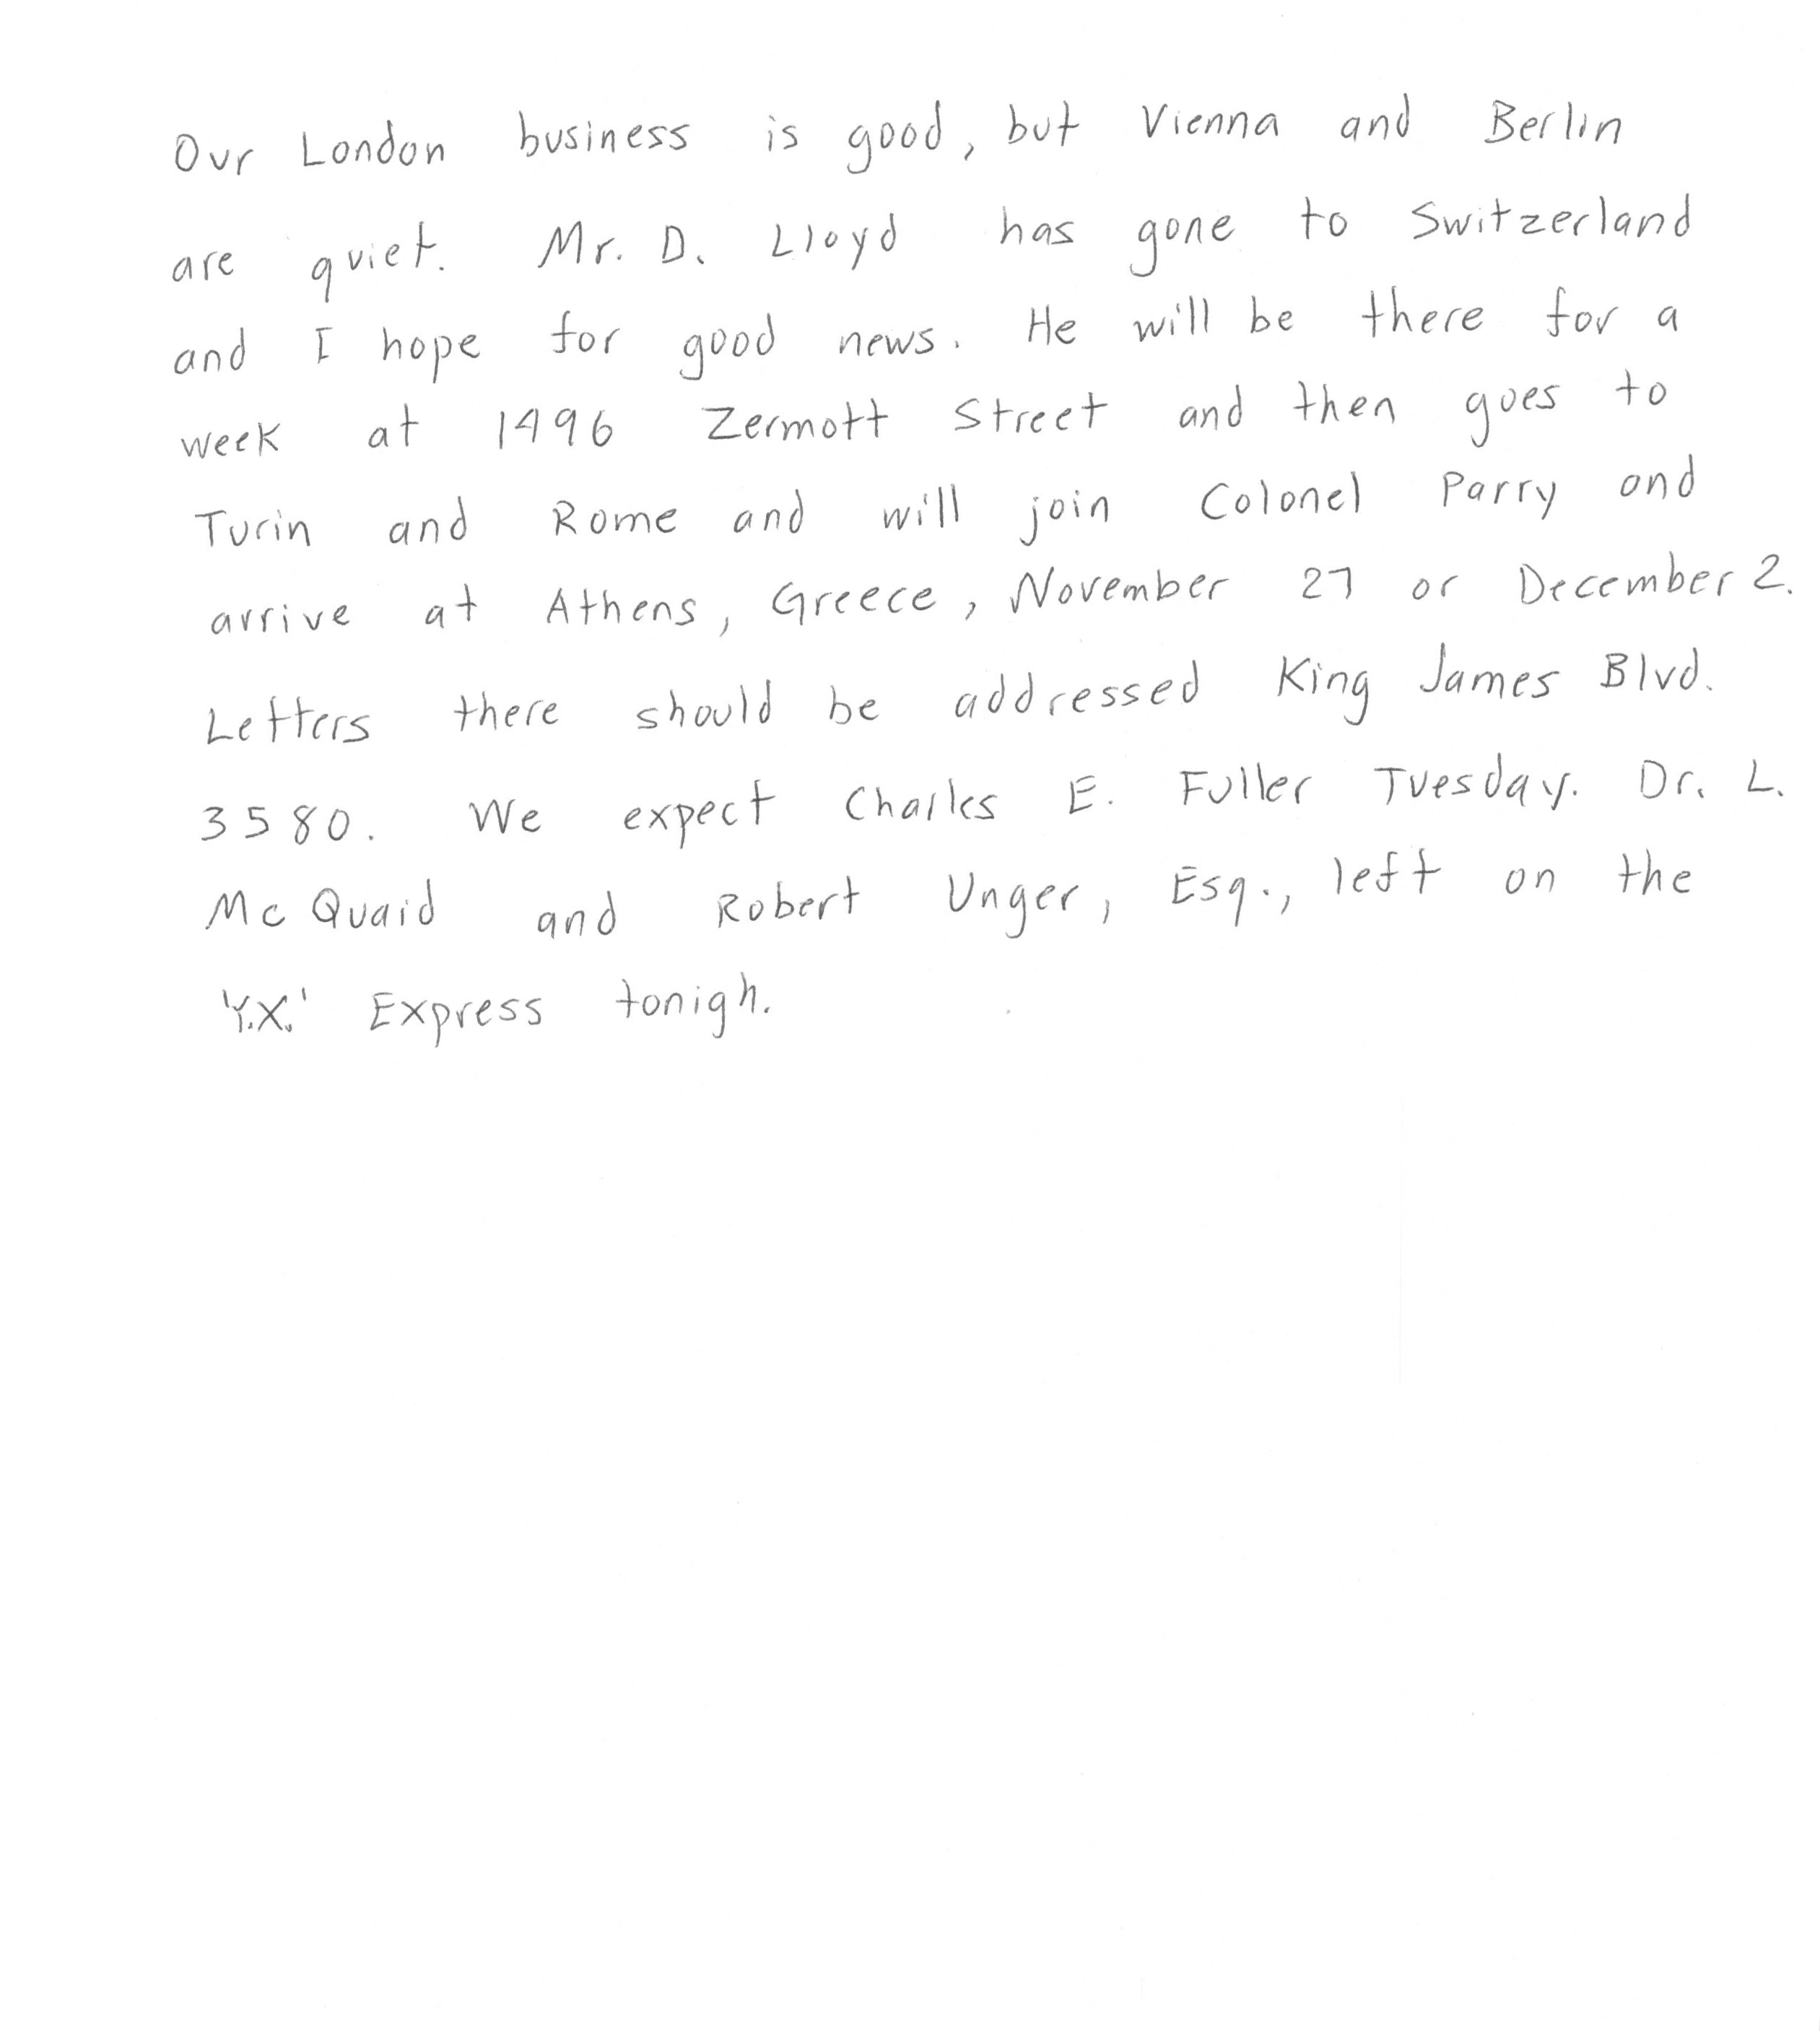 Our London business is good, but Vienna and Berlin
are quiet. Mr. D. Lloyd has gone to Switzerland
and I hope for good news. He will be there for a
week at 1496 Zermott Street and then goes to
Turin and Rome and will join Colonel Parry and
arrive at Athens, Greece, November 27 or December 2.
Letters there should be addressed King James Blvd.
3580. We expect Charles E. Fuller Tuesday. Dr. L.
McQuaid and Robert Unger, Esq., left on the
'Y.X.' Express tonigh.